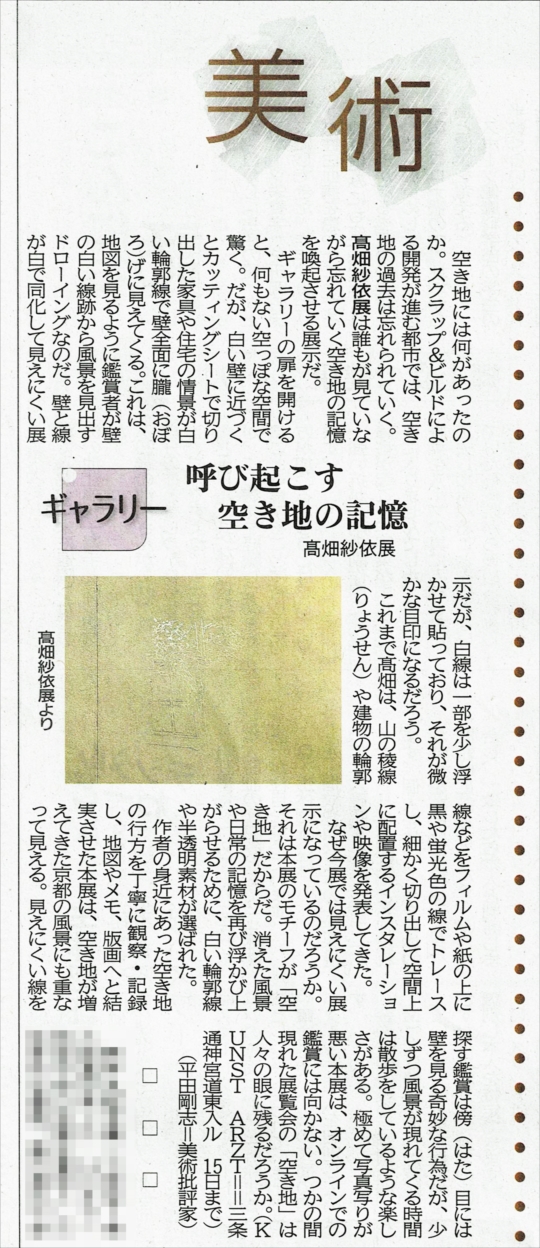 美術
空き地には何があったの
か。スクラップ&ビルドによ
る開発が進む都市では、空き
地の過去は忘れられていく。
髙畑紗依展は誰もが見ていな
がら忘れていく空き地の記憶
を喚起させる展示だ。
ギャラリーの扉を開ける
と、何もない空っぽな空間で
驚く。だが、白い壁に近づく
とカッティングシートで切り
出した家具や住宅の情景が白
い輪郭線で壁全面に朧(おぼ
ろ)げに見えてくる。これは、
地図を見るように鑑賞者が壁
の白い線跡から風景を見出す
ドローイングなのだ。壁と線
が白で同化して見えにくい展
ギャラリー
呼び起こす
空き地の記憶
髙畑紗依展
示だが、白線は一部を少し浮
かせて貼っており、それが微
かな目印になるだろう。
これまで髙畑は、山の稜線
(りょうせん)や建物の輪郭
髙畑紗依展より
線などをフィルムや紙の上に
黒や蛍光色の線でトレース
し、細かく切り出して空間上
に配置するインスタレーショ
ンや映像を発表してきた。
なぜ今展では見えにくい展
示になっているのだろうか。
それは本展のモチーフが「空
き地」だからだ。消えた風景
や日常の記憶を再び浮かび上
がらせるために、白い輪郭線
や半透明素材が選ばれた。
作者の身近にあった空き地
の行方を丁寧に観察・記録
し、地図やメモ、版画へと結
実させた本展は、空き地が増
えてきた京都の風景にも重な
って見える。見えにくい線を
探す鑑賞は傍(はた)目には
壁を見る奇妙な行為だが、少
しずつ風景が現れてくる時間
は散歩をしているような楽し
さがある。極めて写真写りが
悪い本展は、オンラインでの
鑑賞には向かない。つかの間
現れた展覧会の「空き地」は
人々の眼に残るだろうか。(K
UNST ARZT＝三条
通神宮道東入ル 15日まで)
(平田剛志＝美術批評家)
□ □ □